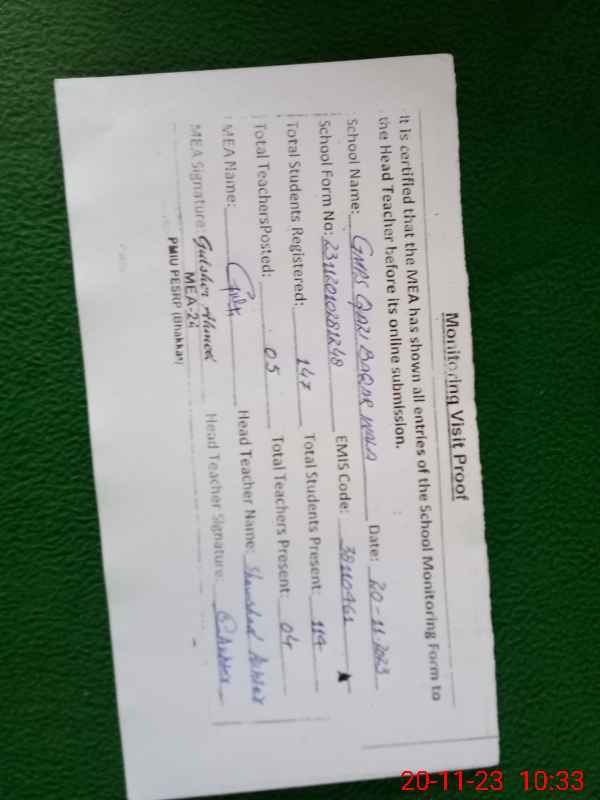 Monitoring Visit Proof
It is certified that the MEA has shown all entries of the School Monitoring Form to
the Head Teacher before its online submission.
School Name: GMPS QAZI BAQAR WALA Date: 20-11-2023
School Form No: EMIS Code:
Total Students Registered: 147 Total Students Present: 114
Total TeachersPosted: 05 Total Teachers Present: 04
MEA Name: Head Teacher Name: Shamshad Akhtar
MEA Signature: Gulsher Ahmed Head Teacher Signature:
MEA-24
PMIU PESRP (Bhakkar)
20-11-23 10:33